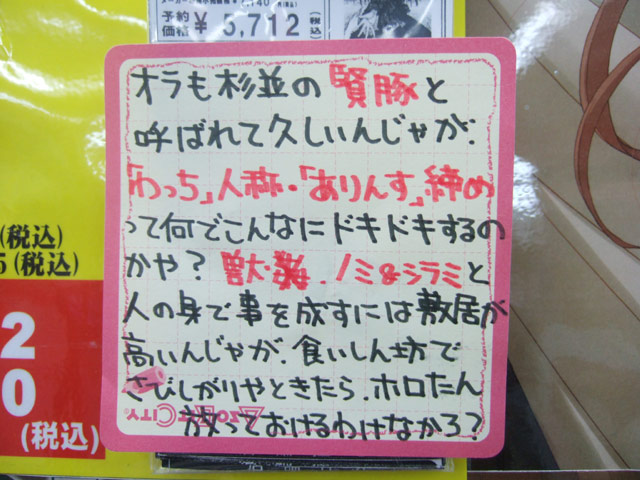 予約
価格 ¥ 5,712 (税込)
オラも杉並の賢豚と
呼ばれて久しいんじゃが.
「わっち」人称・「ありんす」締め
って何でこんなにドキドキするの
かや? 獣・糞.ノミ&シラミと
人の身で事を成すには敷居が
高いんじゃが.食いしん坊で
さびしがりやときたら.ホロたん
放っておけるわけなかろ?
(税込)
5(税込)
2
0
(税込)